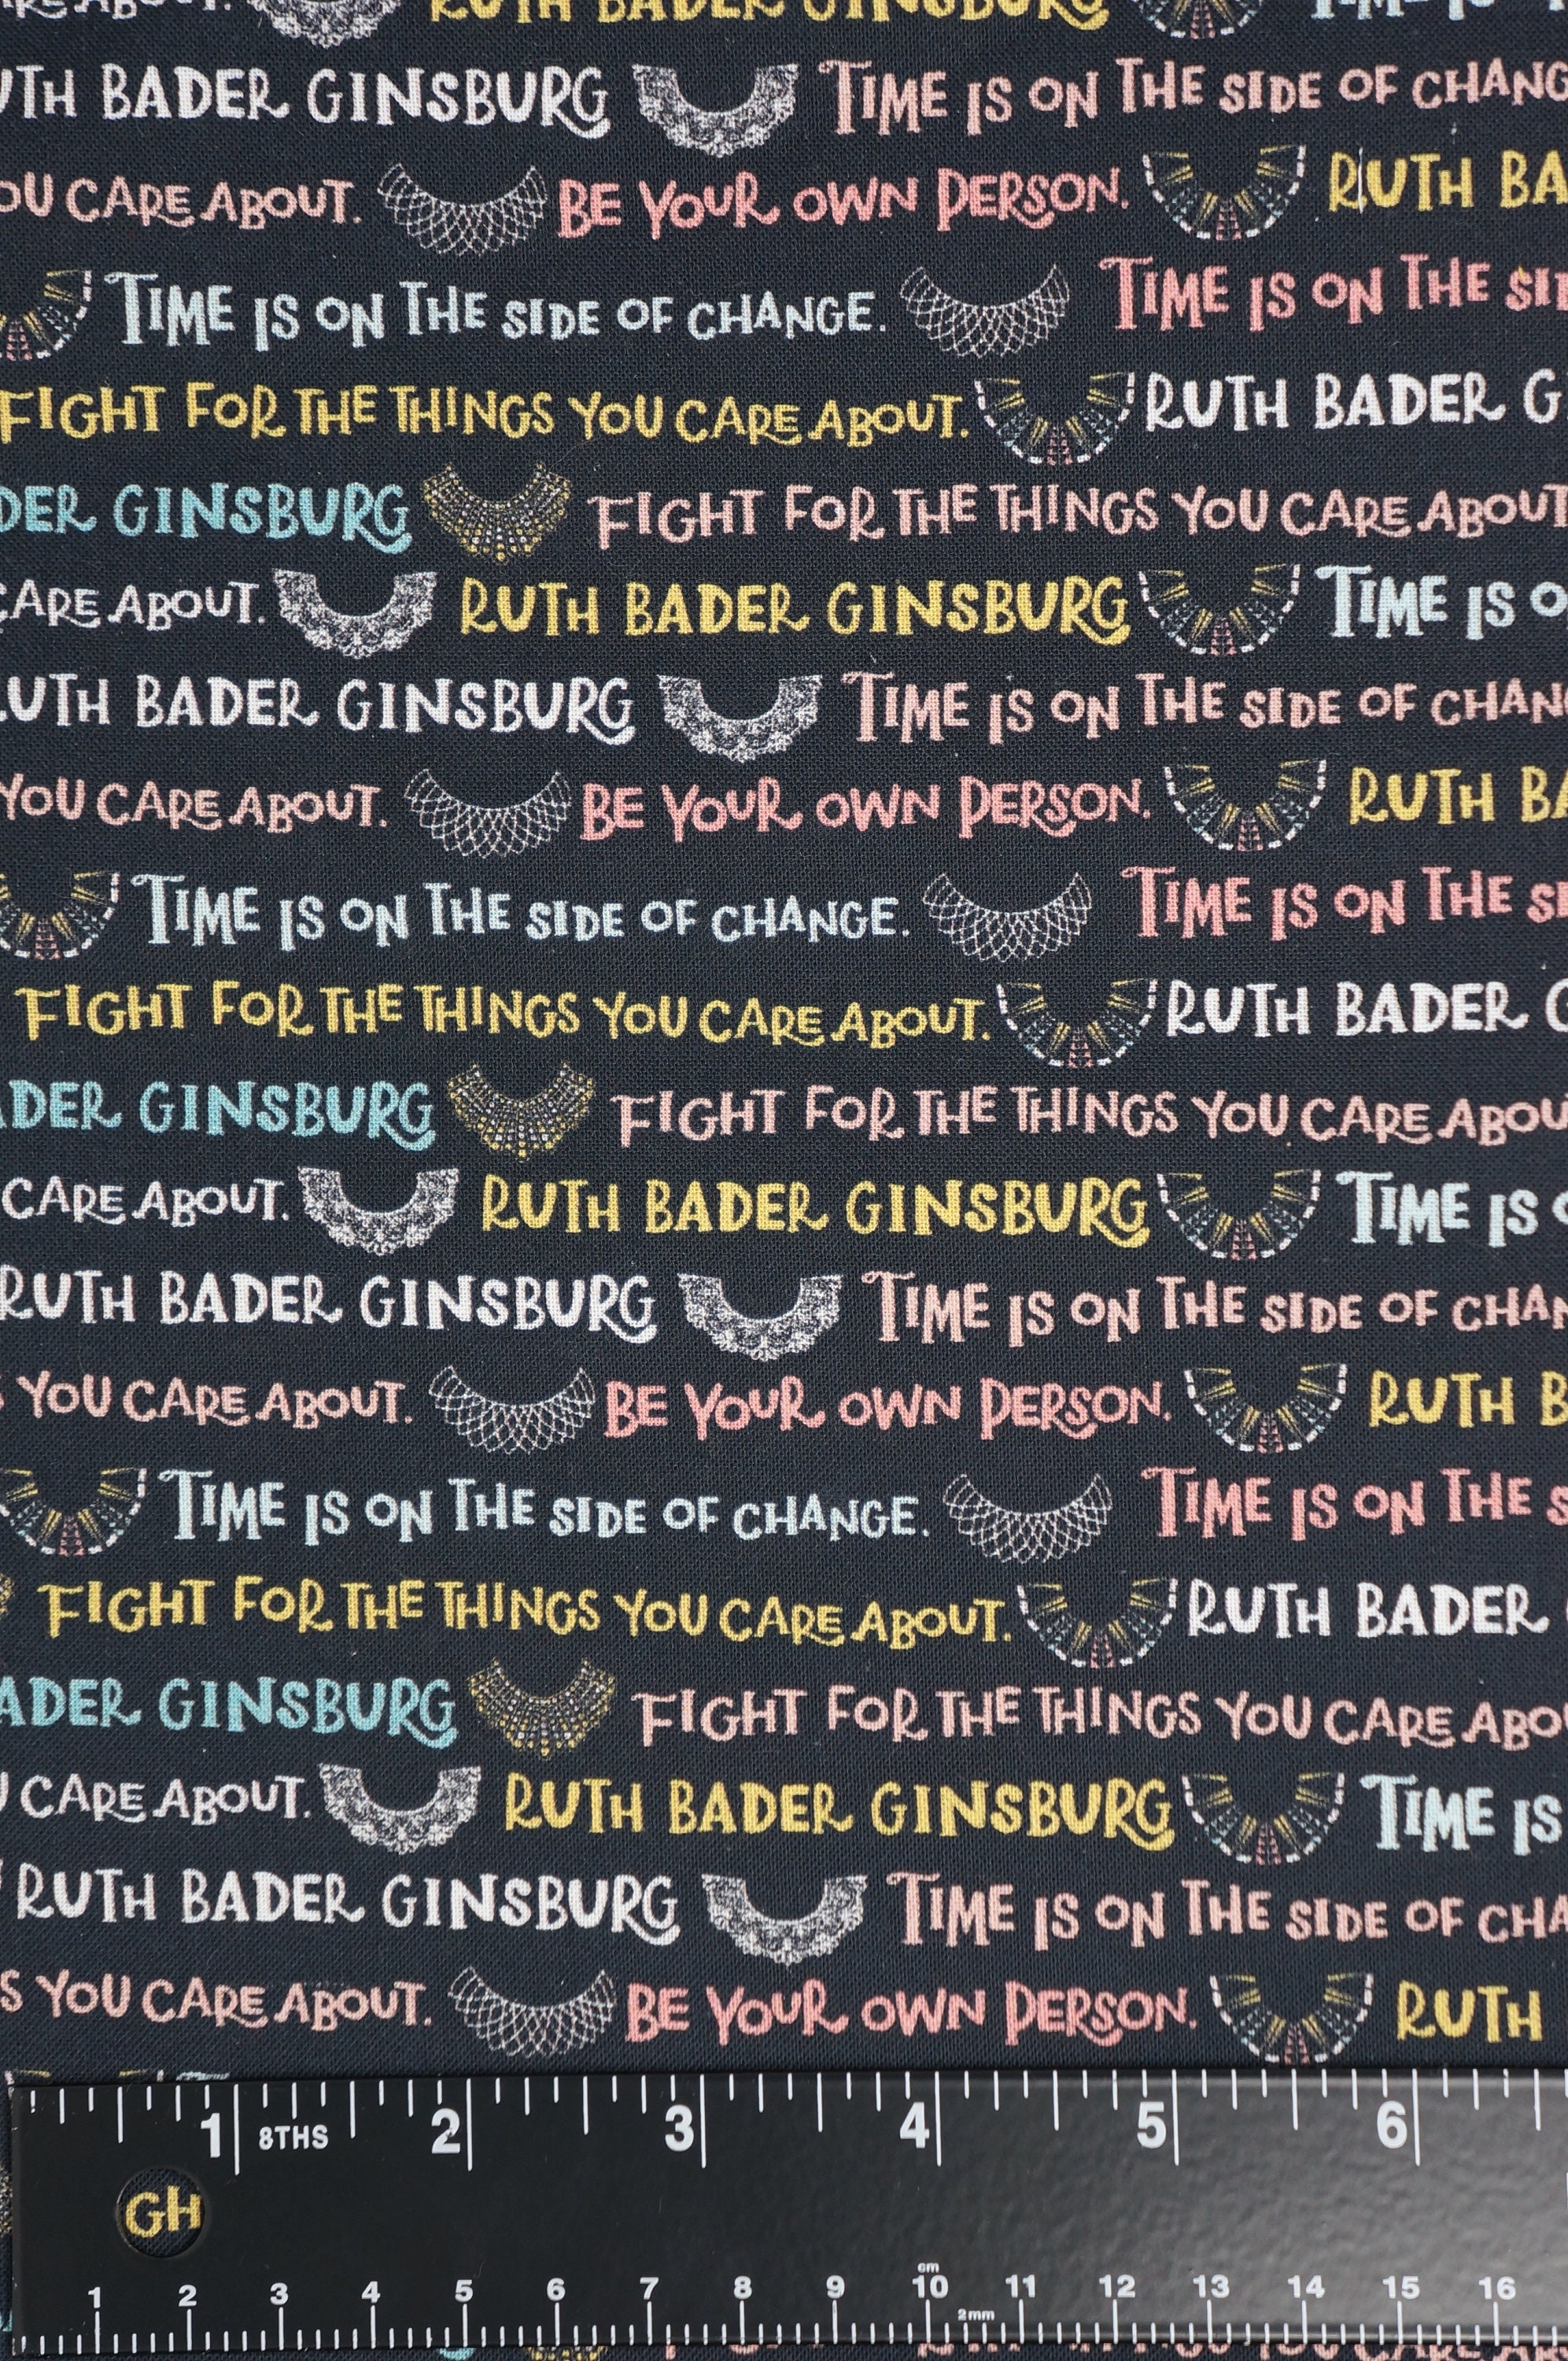 RUTH BADER GINSBURG TIME IS
UTH BADER GINSBURG TIME IS ON THE SIDE OF CHANG
OU CARE ABOUT. BE YOUR OWN PERSON. RUTH BA
TIME IS ON THE SIDE OF CHANGE. TIME IS ON THE SI
FIGHT FOR THE THINGS YOU CARE ABOUT. RUTH BADER G
DER GINSBURG FIGHT FOR THE THINGS YOU CARE ABOUT
CARE ABOUT. RUTH BADER GINSBURG TIME IS O
UTH BADER GINSBURG TIME IS ON THE SIDE OF CHAN
YOU CARE ABOUT. BE YOUR OWN PERSON. RUTH BA
TIME IS ON THE SIDE OF CHANGE. TIME IS ON THE SI
FIGHT FOR THE THINGS YOU CARE ABOUT. RUTH BADER G
ADER GINSBURG FIGHT FOR THE THINGS YOU CARE ABOU
CARE ABOUT. RUTH BADER GINSBURG TIME IS O
RUTH BADER GINSBURG TIME IS ON THE SIDE OF CHAN
S YOU CARE ABOUT. BE YOUR OWN PERSON. RUTH B
TIME IS ON THE SIDE OF CHANGE. TIME IS ON THE S
FIGHT FOR THE THINGS YOU CARE ABOUT. RUTH BADER
ADER GINSBURG FIGHT FOR THE THINGS YOU CARE ABO
U CARE ABOUT. RUTH BADER GINSBURG TIME IS
RUTH BADER GINSBURG TIME IS ON THE SIDE OF CHA
S YOU CARE ABOUT. BE YOUR OWN PERSON. RUTH
1 8THS 2 3 4 5 6
GH
cm
1 2 3 4 5 6 7 8 9 10 11 12 13 14 15 16
2mm